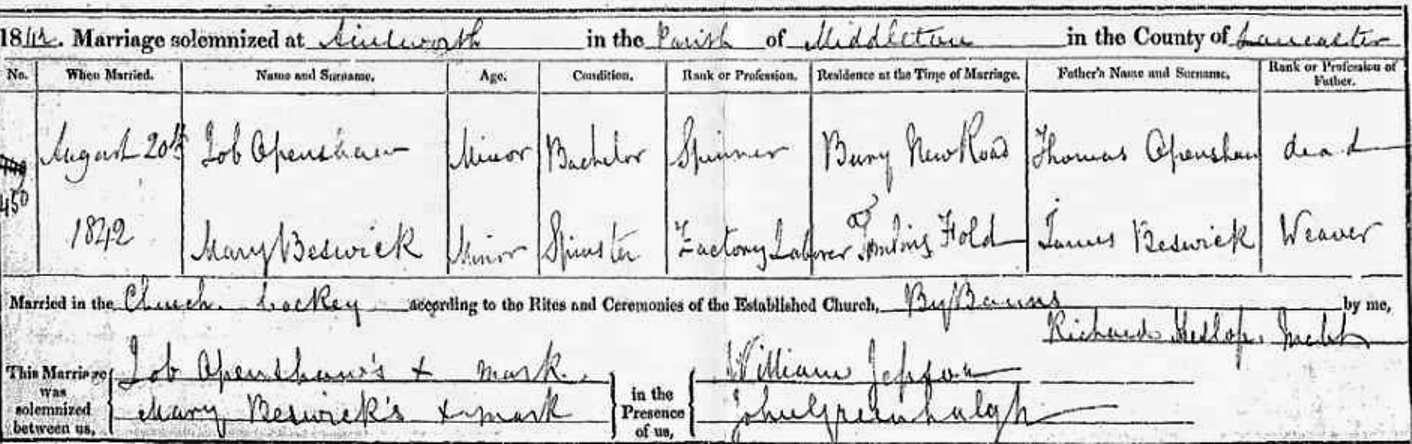 1842. Marriage solemnized at Ainsworth in the Parish of Middleton in the County of Lancaster
No. When Married. Name and Surname. Age. Condition. Rank or Profession. Residence at the Time of Marriage. Father's Name and Surname. Rank or Profession of Father.
450 August 20th Job Openshaw Minor Bachelor Spinner Bury New Road Thomas Openshaw dead
1842 Mary Beswick Minor Spinster Factory Laborer Fold James Beswick Weaver
Married in the Church Cockey according to the Rites and Ceremonies of the Established Church, By Banns by me,
Richard Heslop,
This Marriage was solemnized between us, Job Openshaw's x mark. in the Presence of us, William Jepson
Mary Beswick's x mark John Greenhalgh